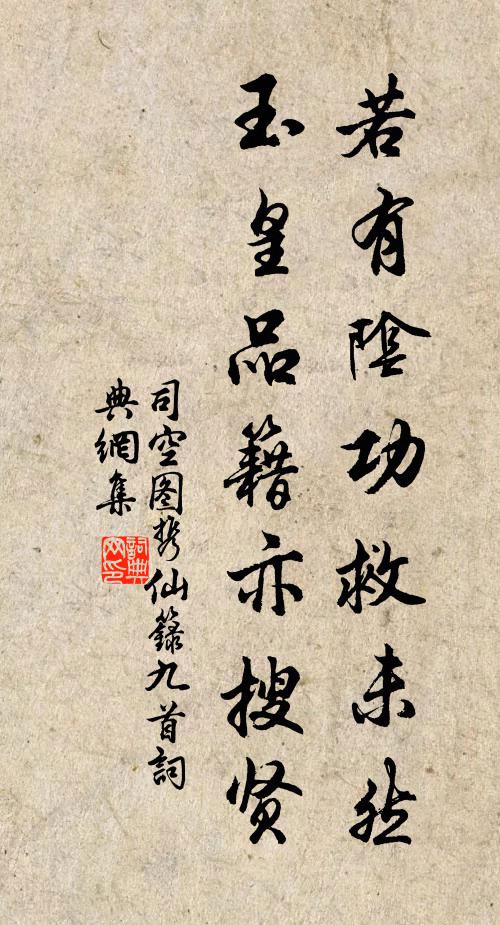 若有陰功救未然
玉皇品籍亦搜贤
司空图携仙籙九首詞
典網集
詞典
网印